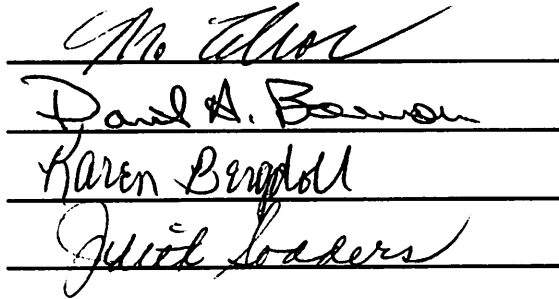 M.
David A. Bowman
Karen Bergdoll
Judith Sodders